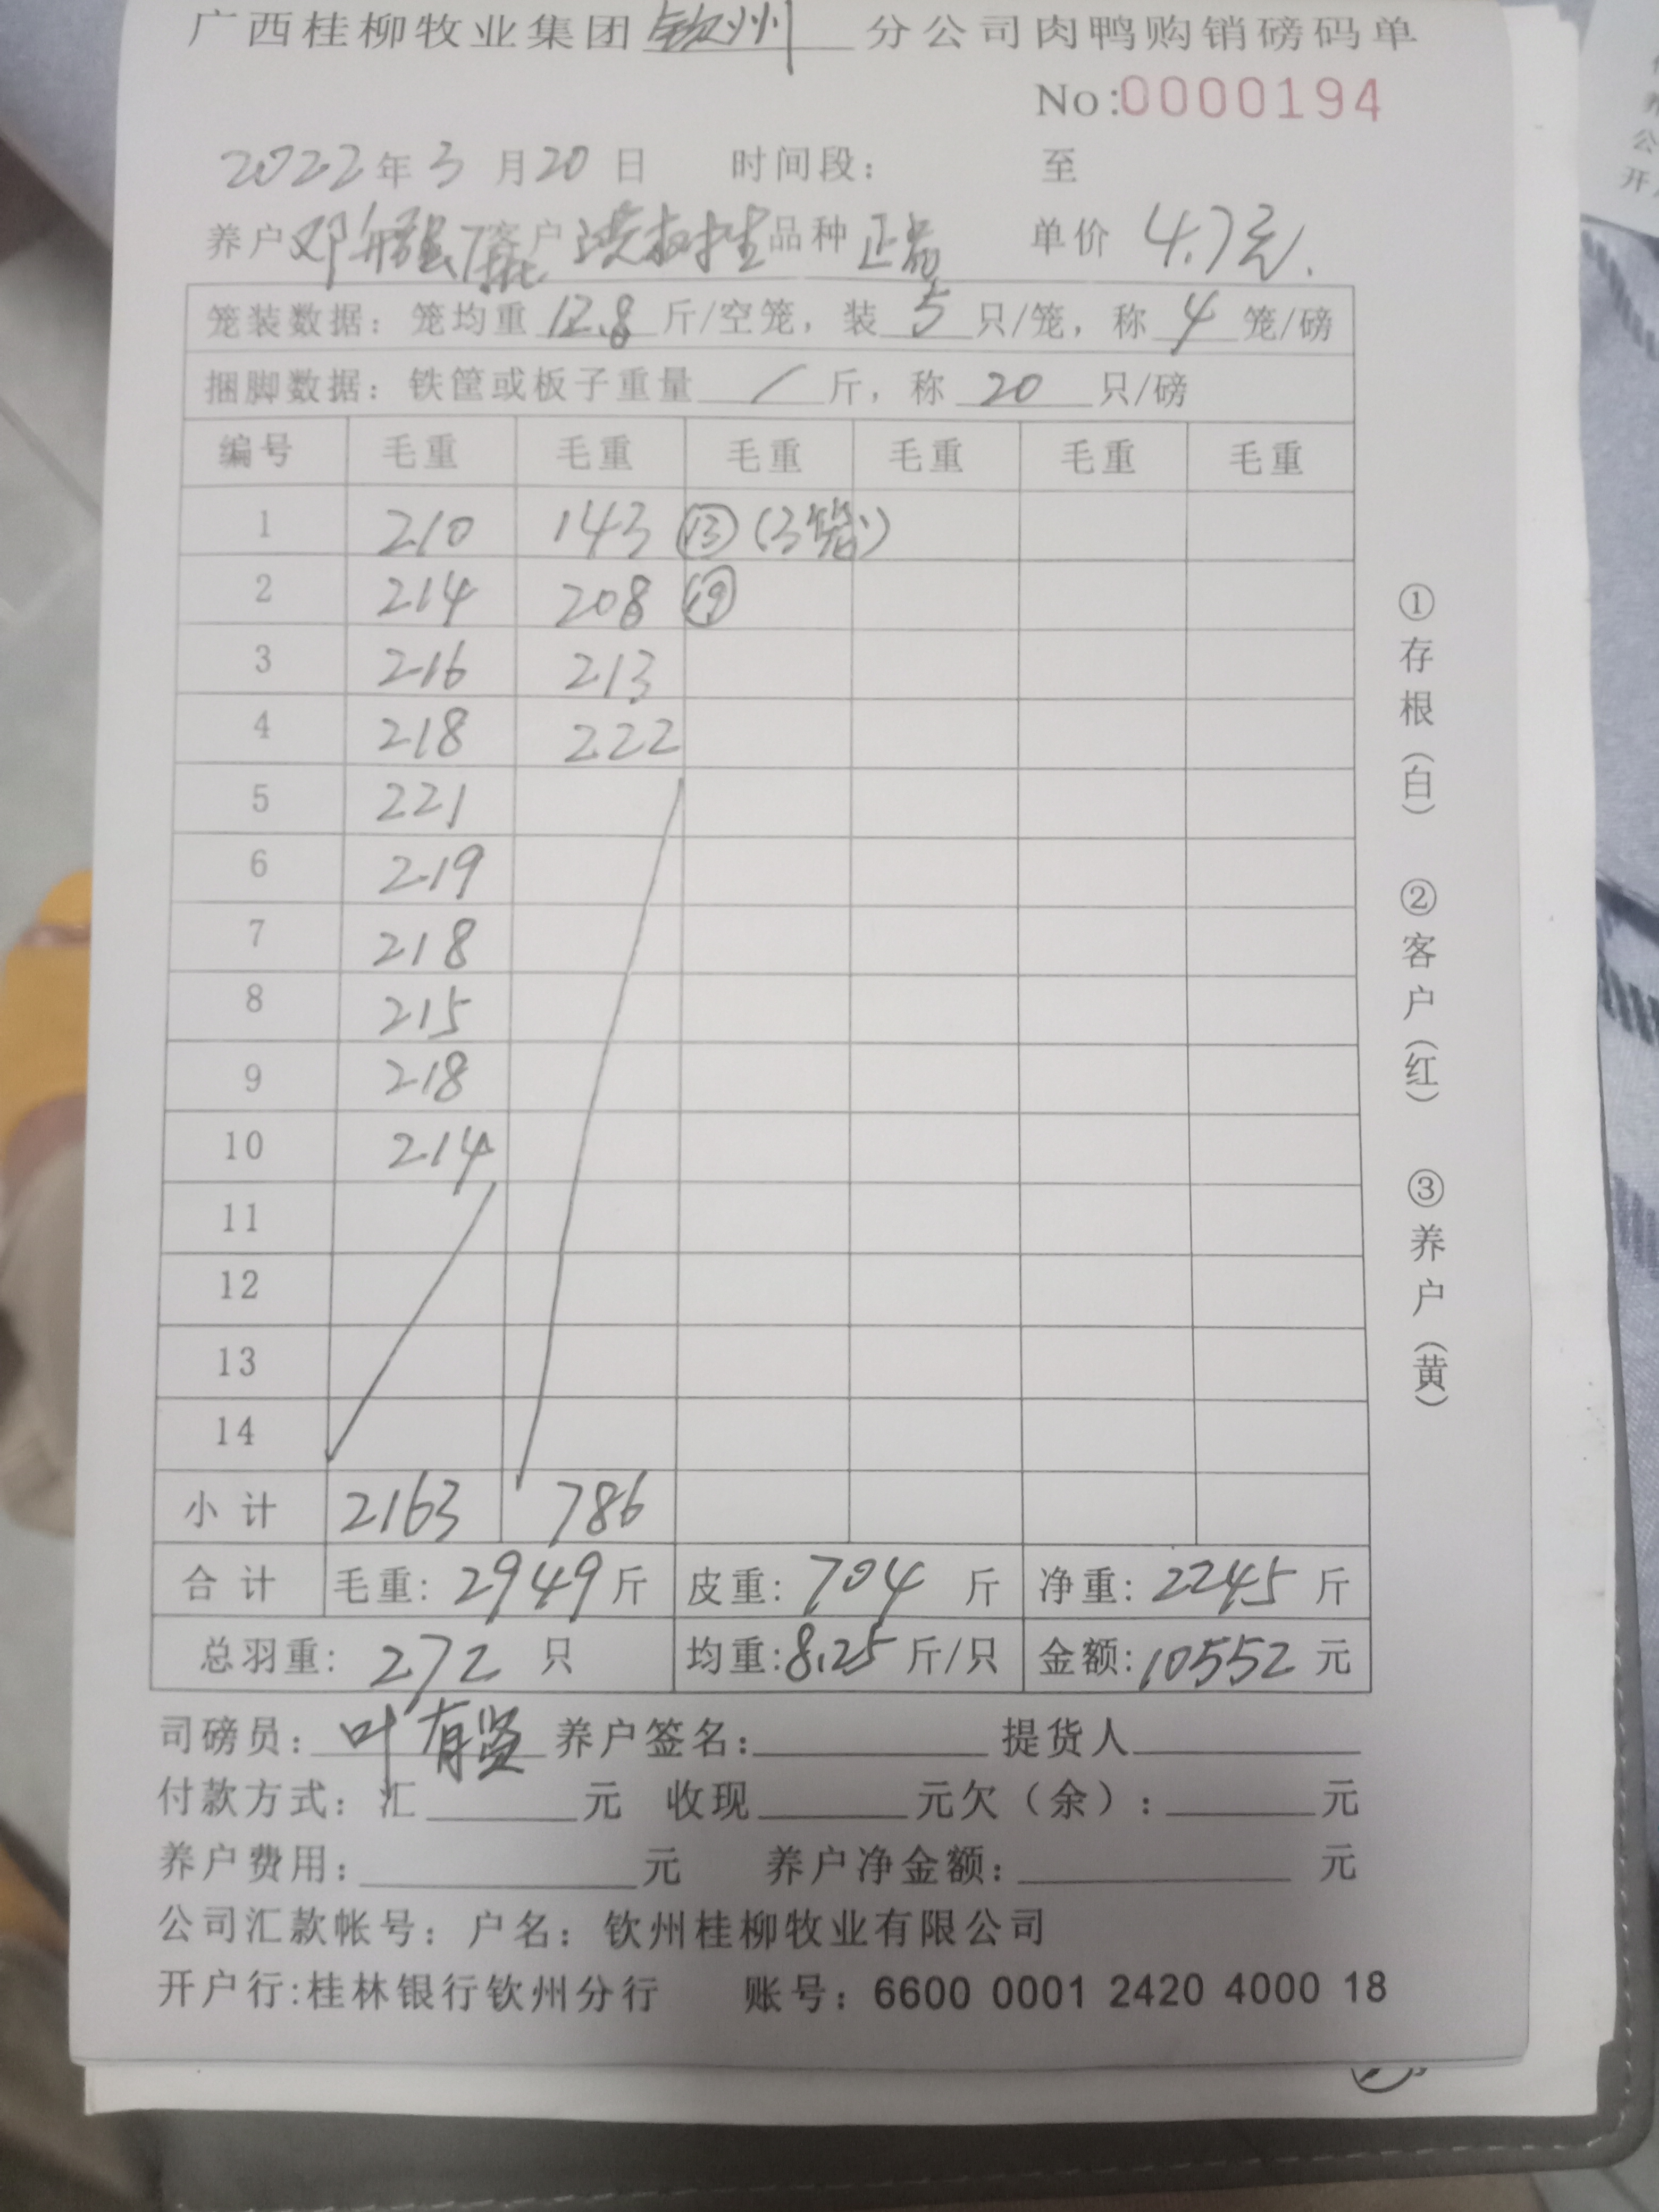 广西桂柳牧业集团 钦州 分公司肉鸭购销磅码单
No:0000194
2022年3月20日 时间段: 至
养户 邓 客户 品种 正品 单价 4.7元.
笼装数据: 笼均重 12.8 斤/空笼, 装 5 只/笼, 称 4 笼/磅
捆脚数据: 铁筐或板子重量 / 斤, 称 20 只/磅
编号 毛重 毛重 毛重 毛重 毛重 毛重
1 210 143 ⑬ (3笼)
2 214 208 ⑲
3 216 213
4 218 222
5 221
6 219
7 218
8 215
9 218
10 214
11
12
13
14
小计 2163 786
合计 毛重: 2949 斤 皮重: 704 斤 净重: 2245 斤
总羽重: 272 只 均重: 8.25 斤/只 金额: 10552 元
司磅员: 叶有坚 养户签名: 提货人
付款方式: 汇 元 收现 元欠(余): 元
养户费用: 元 养户净金额: 元
公司汇款帐号: 户名: 钦州桂柳牧业有限公司
开户行:桂林银行钦州分行 账号: 6600 0001 2420 4000 18
①存根(白) ②客户(红) ③养户(黄)